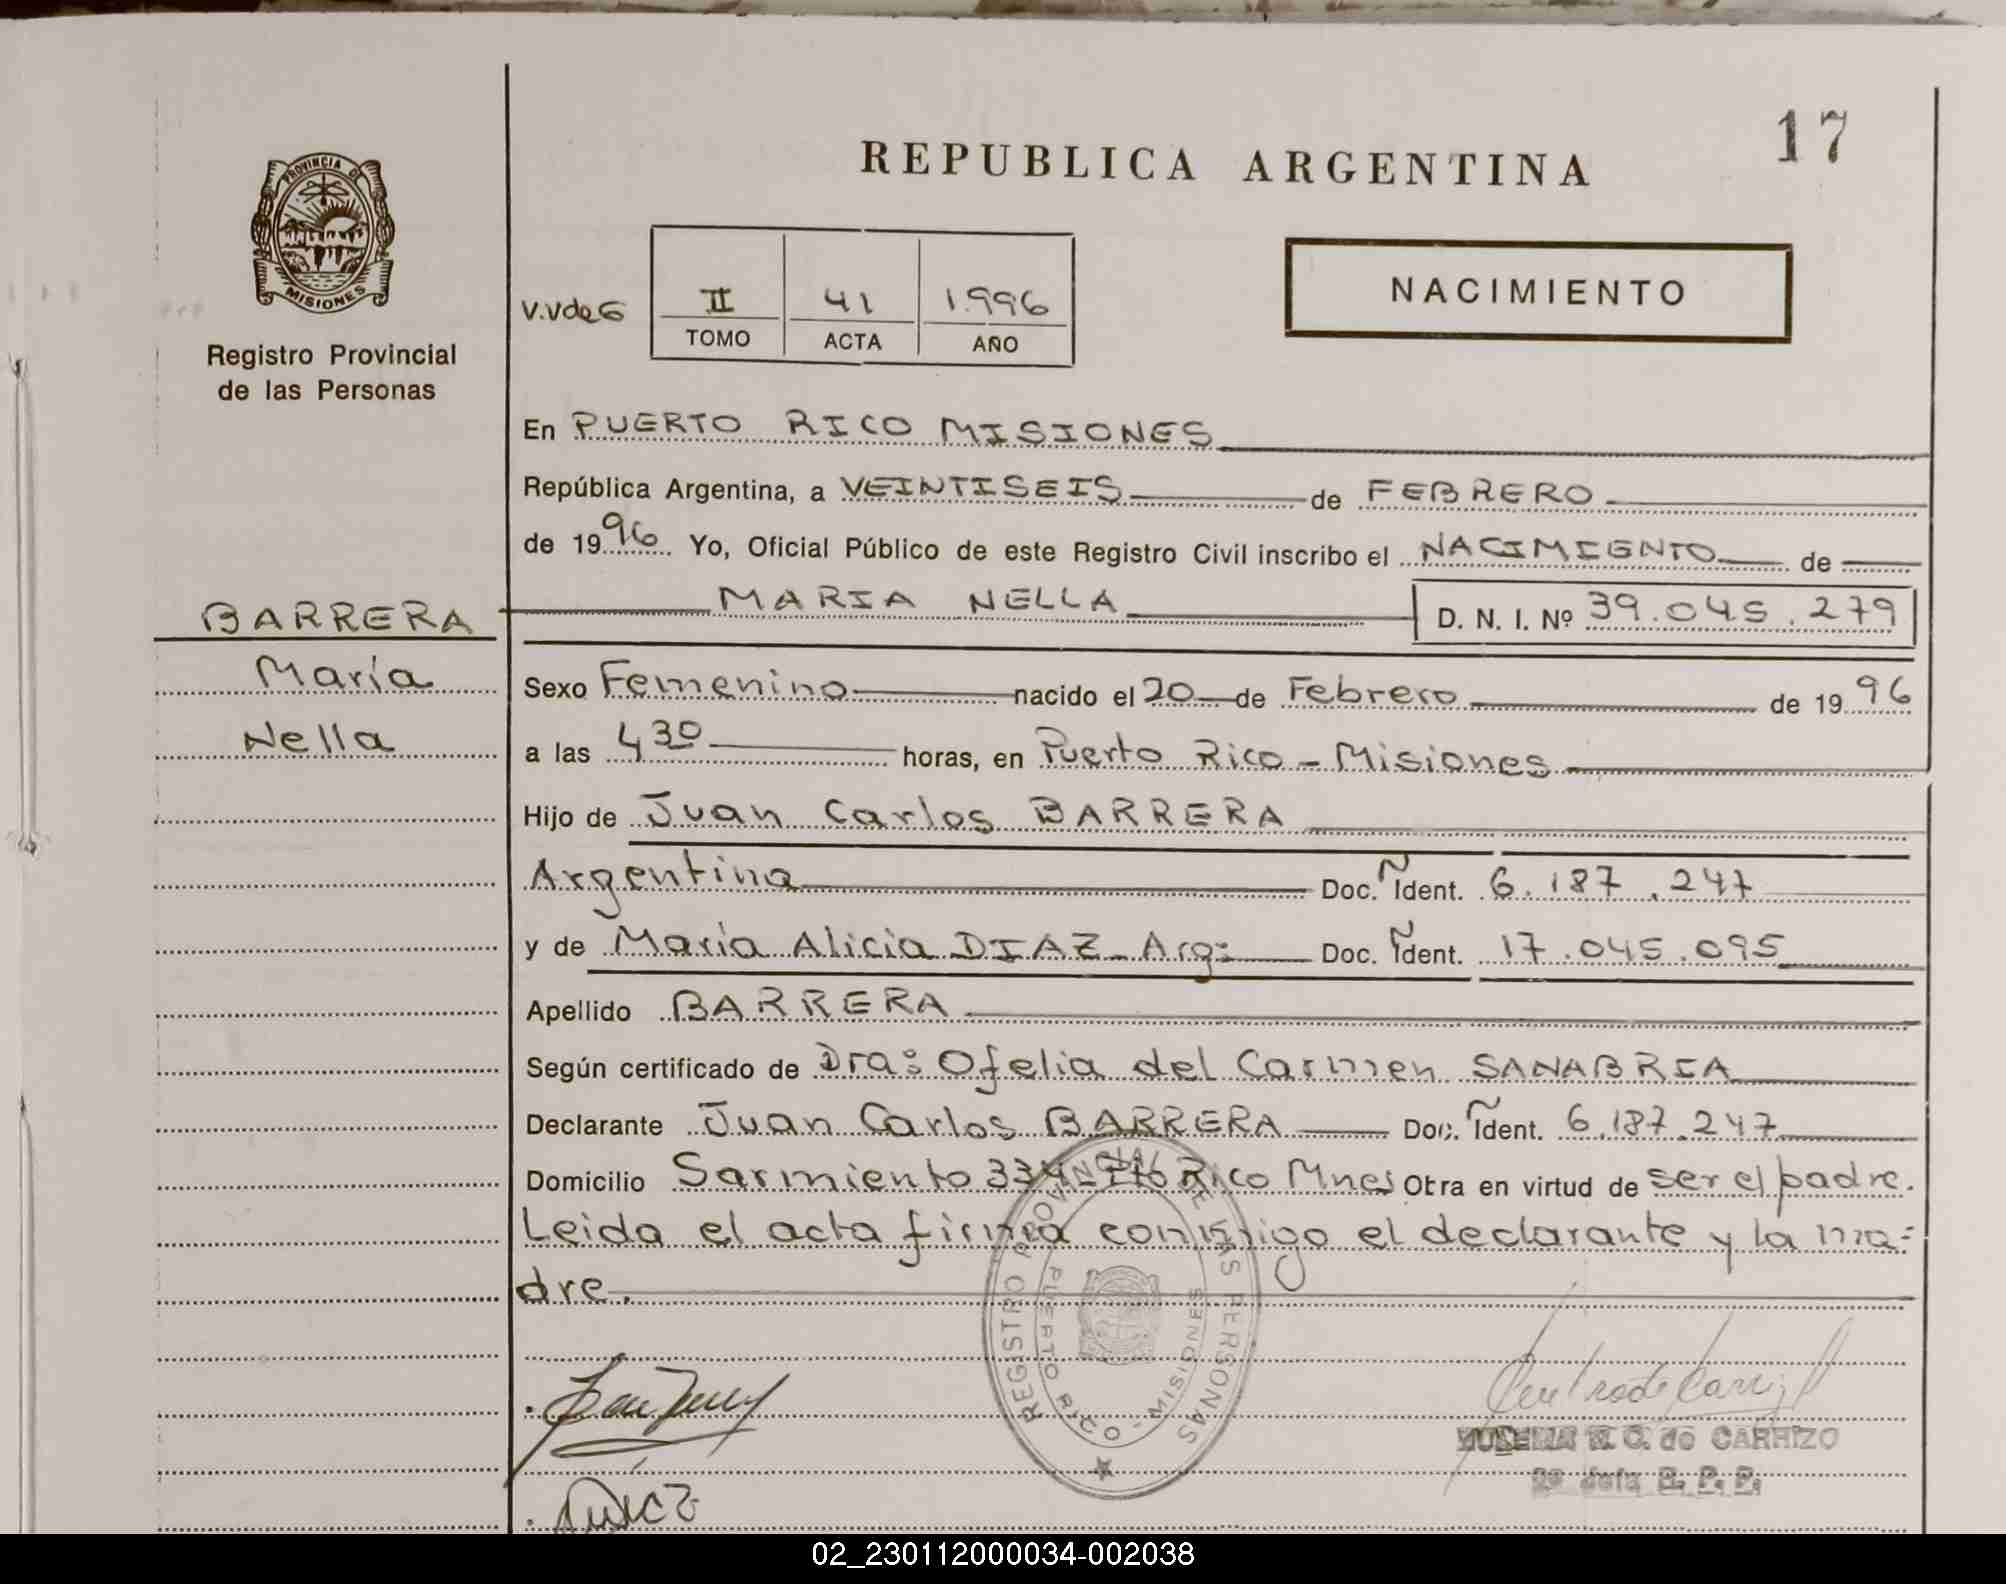 17
REPUBLICA ARGENTINA
PROVINCIA DE
MISIONES
Registro Provincial
de las Personas
NACIMIENTO
V.VdeG
II 41 1.996
TOMO ACTA AÑO
En PUERTO RICO MISIONES
República Argentina, a VEINTISEIS de FEBRERO
de 1996 Yo, Oficial Público de este Registro Civil inscribo el NACIMIENTO de
BARRERA
MARIA NELLA D. N. I. Nº 39.045.279
María
Sexo Femenino nacido el 20 de Febrero de 1996
Nella
a las 430 horas, en Puerto Rico - Misiones
Hijo de Juan Carlos BARRERA
Argentina Doc. Ident. 6.187.247
y de María Alicia DIAZ - Arg: Doc. Ident. 17.045.095
Apellido BARRERA
Según certificado de Dra: Ofelia del Carmen SANABRIA
Declarante Juan Carlos BARRERA Doc. Ident. 6.187.247
Domicilio Sarmiento 334 - Pto Rico Mnes Obra en virtud de ser el padre.
Leida el acta firma conmigo el declarante y la ma=
dre.
REGISTRO PROVINCIAL DE LAS PERSONAS
PUERTO RICO - MISIONES
N. C. de CARRIZO
2º Jefa R. P. P.
02_230112000034-002038